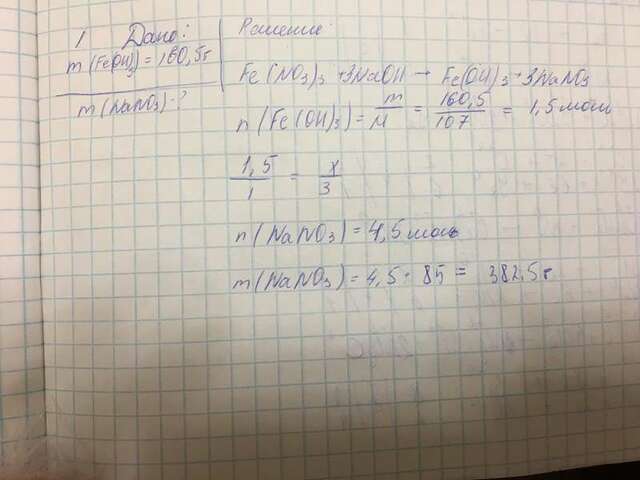 1 Дано:
m(Fe(OH)3) = 160,5г
m(NaNO3)-?
Решение:
Fe(NO3)3 + 3NaOH → Fe(OH)3 + 3NaNO3
n(Fe(OH)3) = m/M = 160,5/107 = 1,5 моль
1,5/1 = x/3
n(NaNO3) = 4,5 моль
m(NaNO3) = 4,5 · 85 = 382,5г